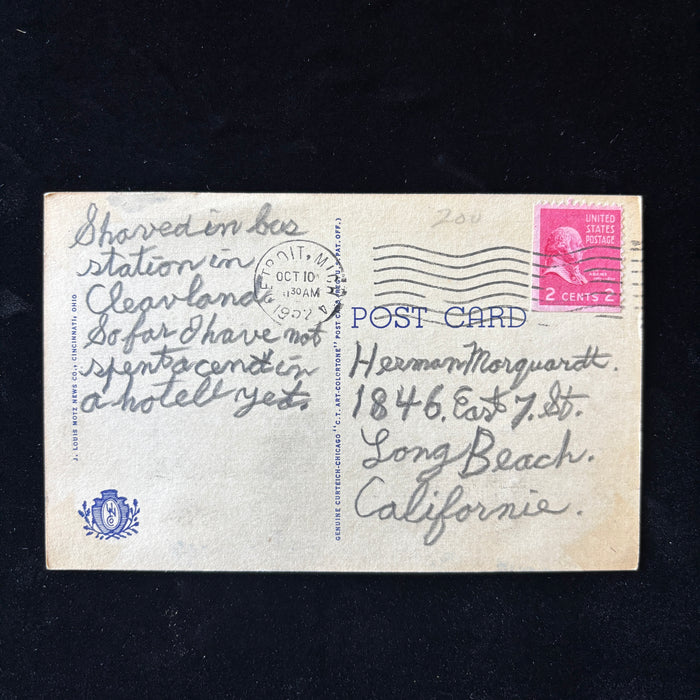 Shaved in bus
station in
Cleavland.
So far I have not
spent a cent in
a hotell yet.
J. LOUIS MOTZ NEWS CO., CINCINNATI, OHIO
GENUINE CURTEICH-CHICAGO "C.T. ART-COLORTONE" POST CARD (REG. U.S. PAT. OFF.)
200
DETROIT, MICH
OCT 10
30 AM
1952
UNITED
STATES
POSTAGE
2 CENTS 2
POST CARD
Herman Morquardt.
1846. East 7. St.
Long Beach.
Californie.